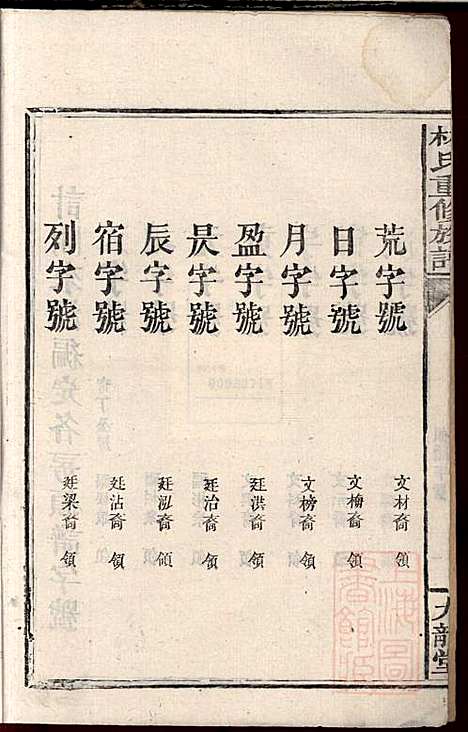 林氏重修族譜
九龍堂
荒字號 文材裔 領
日字號 文檜裔 領
月字號 文榜裔 領
盈字號 廷洪裔 領
昃字號 廷治裔 領
辰字號 廷泓裔 領
宿字號 廷沾裔 領
列字號 廷梁裔 領
上海圖書館藏